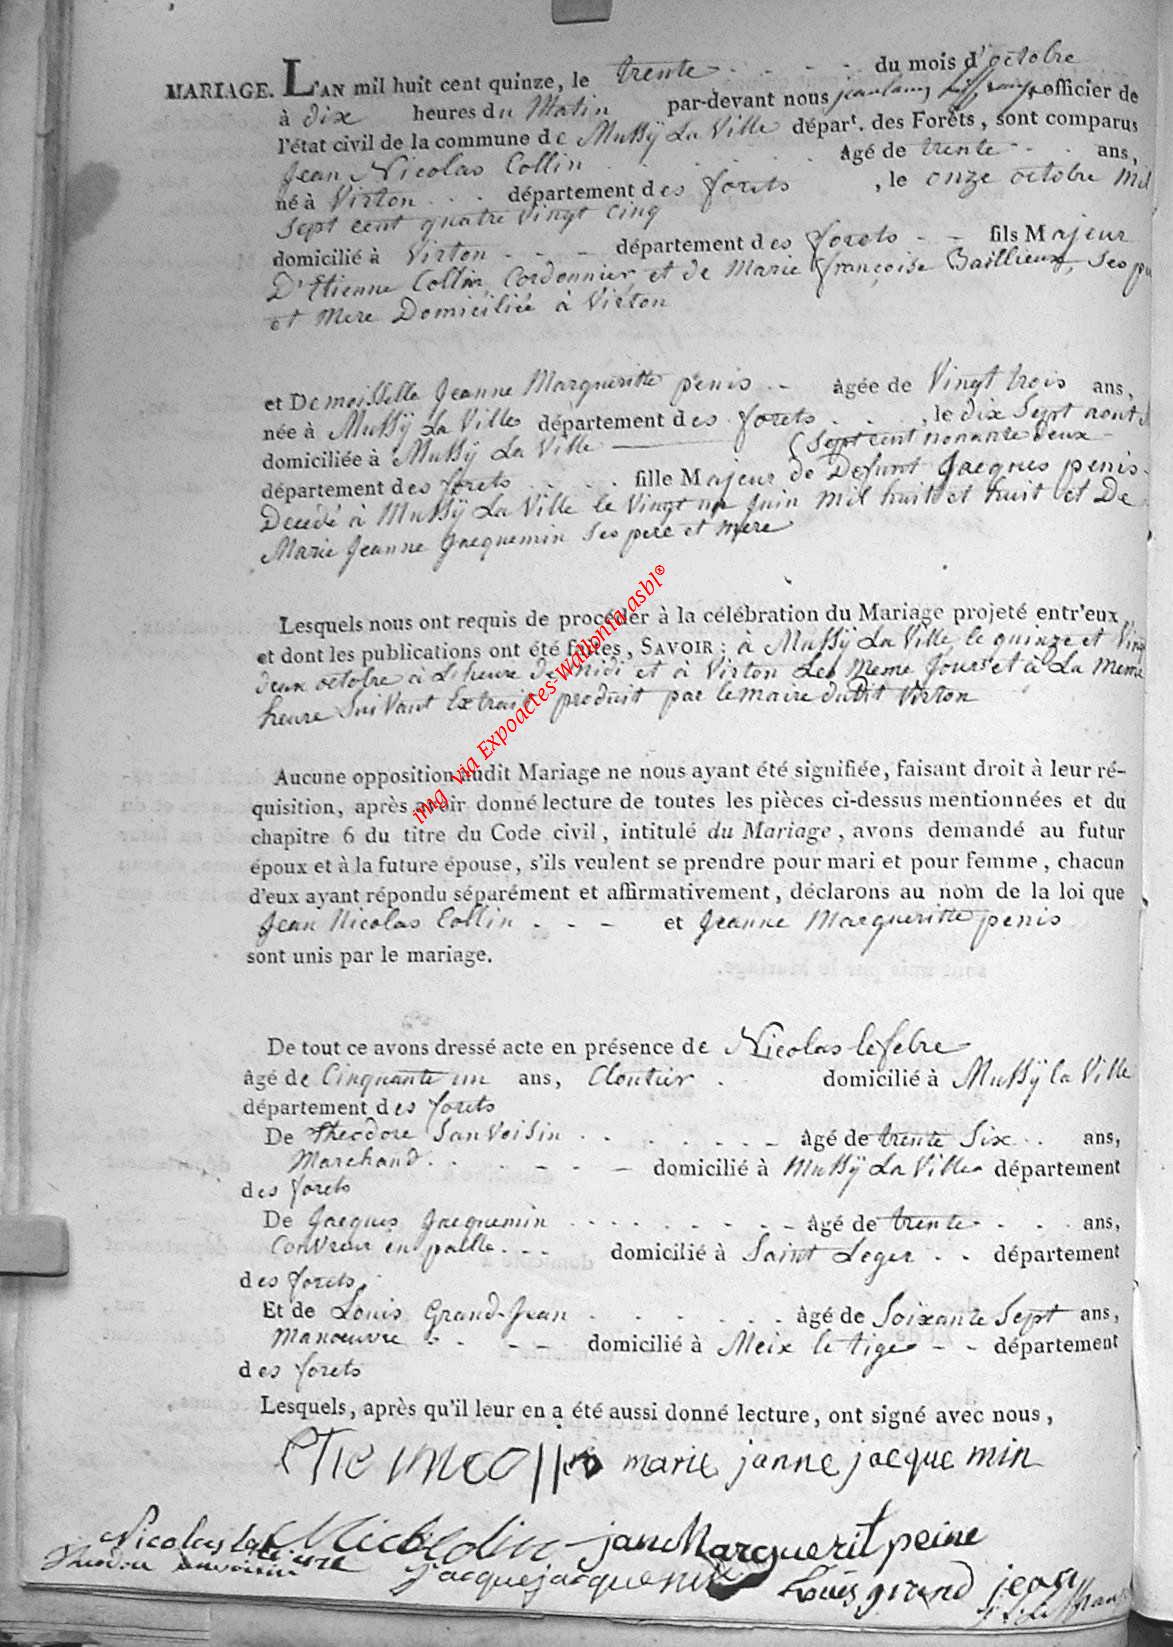 MARIAGE. L'AN mil huit cent quinze, le trente du mois d'octobre
à dix heures du Matin par-devant nous officier de
l'état civil de la commune de Mussÿ La Ville départ. des Forêts, sont comparus
Jean Nicolas Collin âgé de trente ans,
né à Virton département des forets, le onze octobre mil
sept cent quatre vingt cinq
domicilié à Virton département des forets fils Majeur
D'Etienne Collin Cordonnier et de Marie françoise Baillieux, ses
et Mere Domiciliée à Virton
et Demoiselle Jeanne Margueritte penis âgée de Vingt trois ans,
née à Mussÿ La Ville département des forets, le dix Sept
domiciliée à Mussÿ La Ville (Sept cent nonante deux
département des forets fille Majeur de Defunt Jacques penis
Decedé à Mussÿ La Ville le Vingt un Juin mil huit et huit et De
Marie Jeanne Jacquemin ses pere et mere
Lesquels nous ont requis de procéder à la célébration du Mariage projeté entr'eux,
et dont les publications ont été faites, SAVOIR : à Mussÿ La Ville le quinze et Vingt
deux octobre à L'heure de midi et à Virton Les Meme Jours et à La Meme
heure Suivant Extrait produit par le maire dudit Virton
Aucune opposition audit Mariage ne nous ayant été signifiée, faisant droit à leur ré-
quisition, après avoir donné lecture de toutes les pièces ci-dessus mentionnées et du
chapitre 6 du titre du Code civil, intitulé du Mariage, avons demandé au futur
époux et à la future épouse, s'ils veulent se prendre pour mari et pour femme, chacun
d'eux ayant répondu séparément et affirmativement, déclarons au nom de la loi que
Jean Nicolas Collin et Jeanne Margueritte penis
sont unis par le mariage.
De tout ce avons dressé acte en présence de Nicolas lefebre
âgé de Cinquante un ans, Cloutier domicilié à Mussÿ la Ville
département des forets
De Theodore Sanvoisin âgé de trente Six ans,
Marchand domicilié à Mussÿ La Ville département
des forets
De Jacques Jacquemin âgé de trente ans,
Couvreur en paille domicilié à Saint Leger département
des forets.
Et de Louis Grand-Jean âgé de Soixante Sept ans,
Manoeuvre domicilié à Meix le tige département
des forets
Lesquels, après qu'il leur en a été aussi donné lecture, ont signé avec nous,
etienne collin marie janne jacque min
Nicolas jane Marguerit peine
jacque jacquemin Louis grand jean
img via Expoactes-Wallonia asbl®